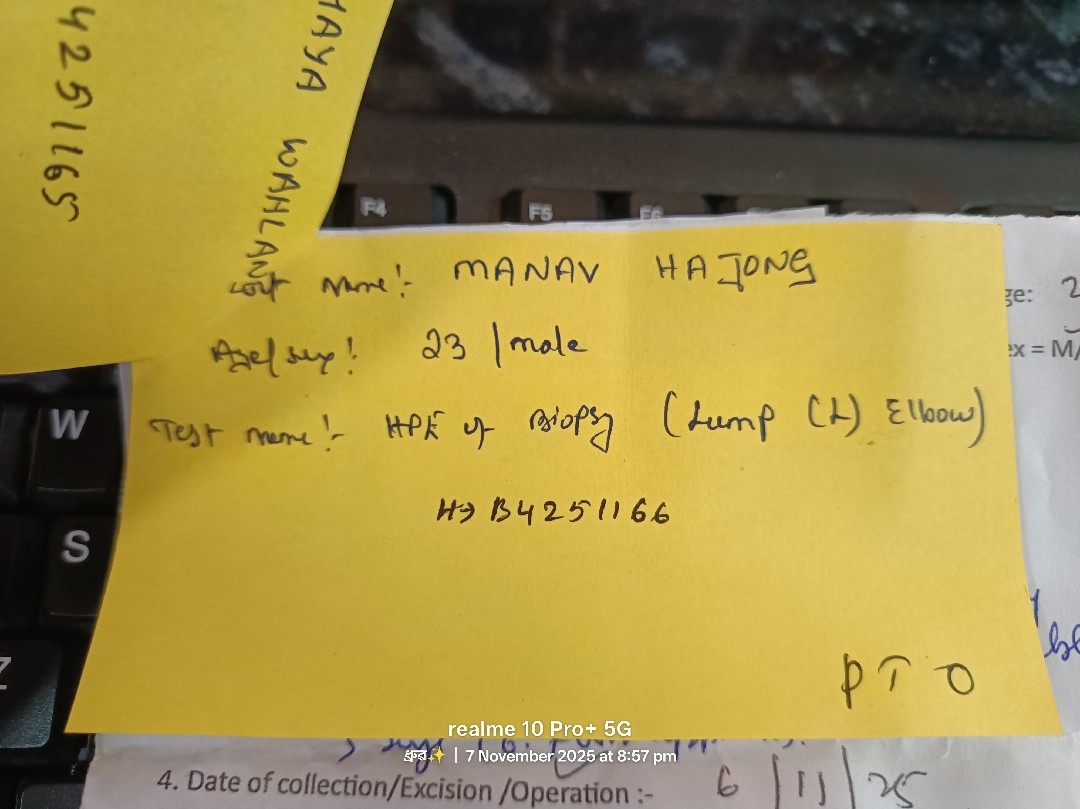 4251165
MAYA WAHLANG
F4 F5 F6
Pt Name:- MANAV HAJONG
Age/sex:- 23/male
Test name:- HPE of Biopsy (Lump (L) Elbow)
H→ B4251166
PTO
ge: 2
ex = M/
W
S
Z
realme 10 Pro+ 5G
✨ | 7 November 2025 at 8:57 pm
4. Date of collection/Excision /Operation :- 6/11/25